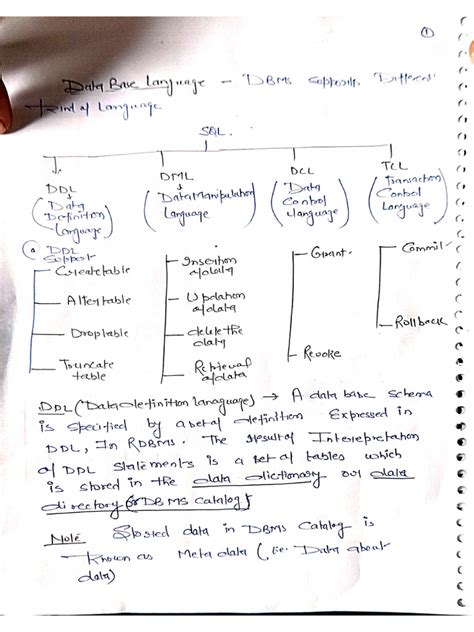 ①
Data Base Language - DBMS Supports Different
kind of Language
SQL.
DDL DML DCL TCL
(Data Definition Language) (Data Manipulation Language) (Data Control Language) (Transaction Control Language)
ⓐ DDL Support
Create table
Insertion of data
Grant.
Commit
Alter table
Updation of data
Drop table
delete the data
Rollback
Truncate table
Retrieval of data
Revoke
DDL (Data definition lanaguage) → A data base schema
is specified by a set of definition Expressed in
DDL, In RDBMS. The result of Interepretation
of DDL statements is a set of tables which
is stored in the data dictionary our data
directory (or DBMS catalog)
Note Stosted data in DBMS Catalog is
known as Meta data (i.e. Data about
data)